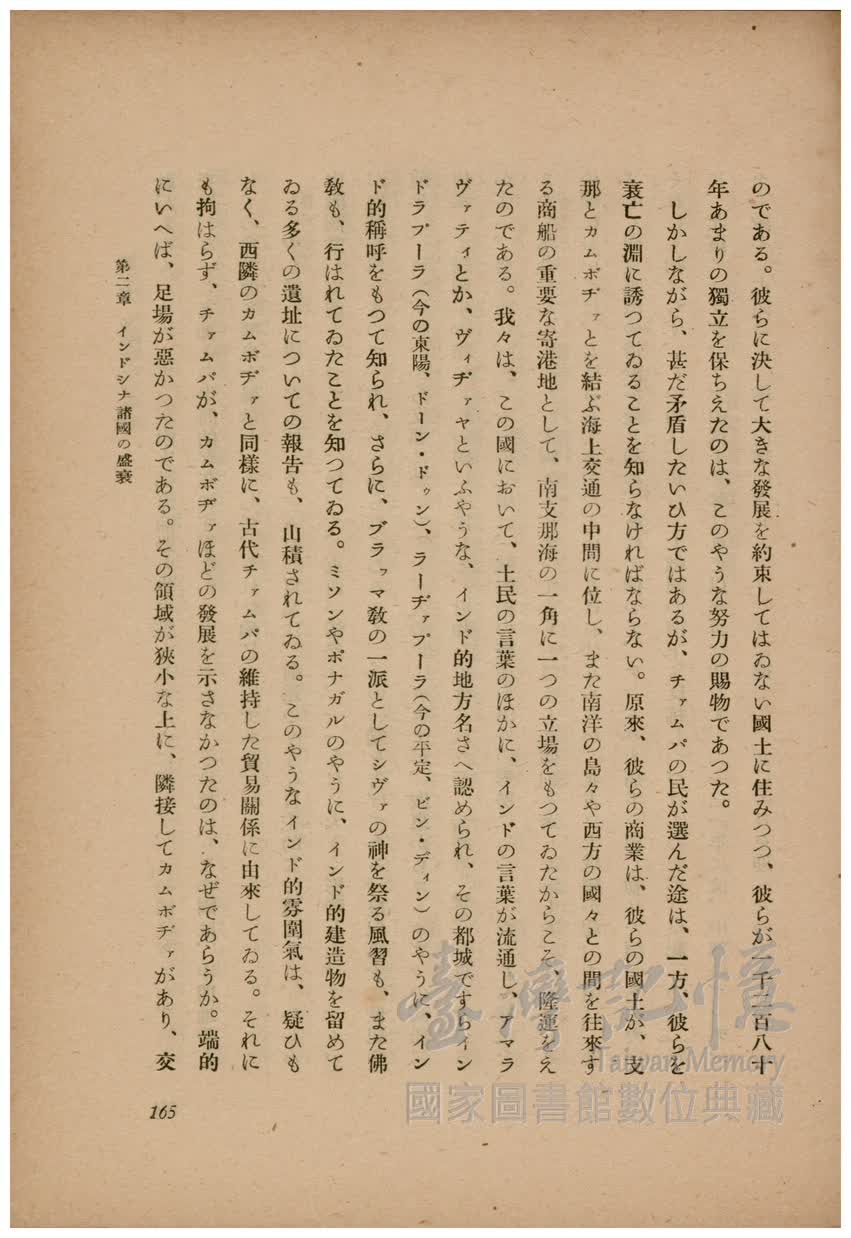 のである。彼らに決して大きな發展を約束してはゐない國土に住みつつ、彼らが一千二百八十
年あまりの獨立を保ちえたのは、このやうな努力の賜物であつた。
しかしながら、甚だ矛盾したいひ方ではあるが、チァムパの民が選んだ途は、一方、彼らを
衰亡の淵に誘つてゐることを知らなければならない。原來、彼らの商業は、彼らの國土が、支
那とカムボヂァとを結ぶ海上交通の中間に位し、また南洋の島々や西方の國々との間を往來す
る商船の重要な寄港地として、南支那海の一角に一つの立場をもつてゐたからこそ、隆運をえ
たのである。我々は、この國において、土民の言葉のほかに、インドの言葉が流通し、アマラ
ヴァティとか、ヴィヂァヤといふやうな、インド的地方名さへ認められ、その都城ですらイン
ドラプーラ（今の東陽、ドーン・ドゥン）、ラーヂァプーラ（今の平定、ビン・ディン）のやうに、イン
ド的稱呼をもつて知られ、さらに、ブラッマ敎の一派としてシヴァの神を祭る風習も、また佛
敎も、行はれてゐたことを知つてゐる。ミソンやポナガルのやうに、インド的建造物を留めて
ゐる多くの遺址についての報吿も、山積されてゐる。このやうなインド的雰圍氣は、疑ひも
なく、西隣のカムボヂァと同樣に、古代チァムパの維持した貿易關係に由來してゐる。それに
も拘はらず、チァムパが、カムボヂァほどの發展を示さなかつたのは、なぜであらうか。端的
にいへば、足場が惡かつたのである。その領域が狹小な上に、隣接してカムボヂァがあり、交
第二章　インドシナ諸國の盛衰
165
臺灣記憶
Taiwan Memory
國家圖書館數位典藏